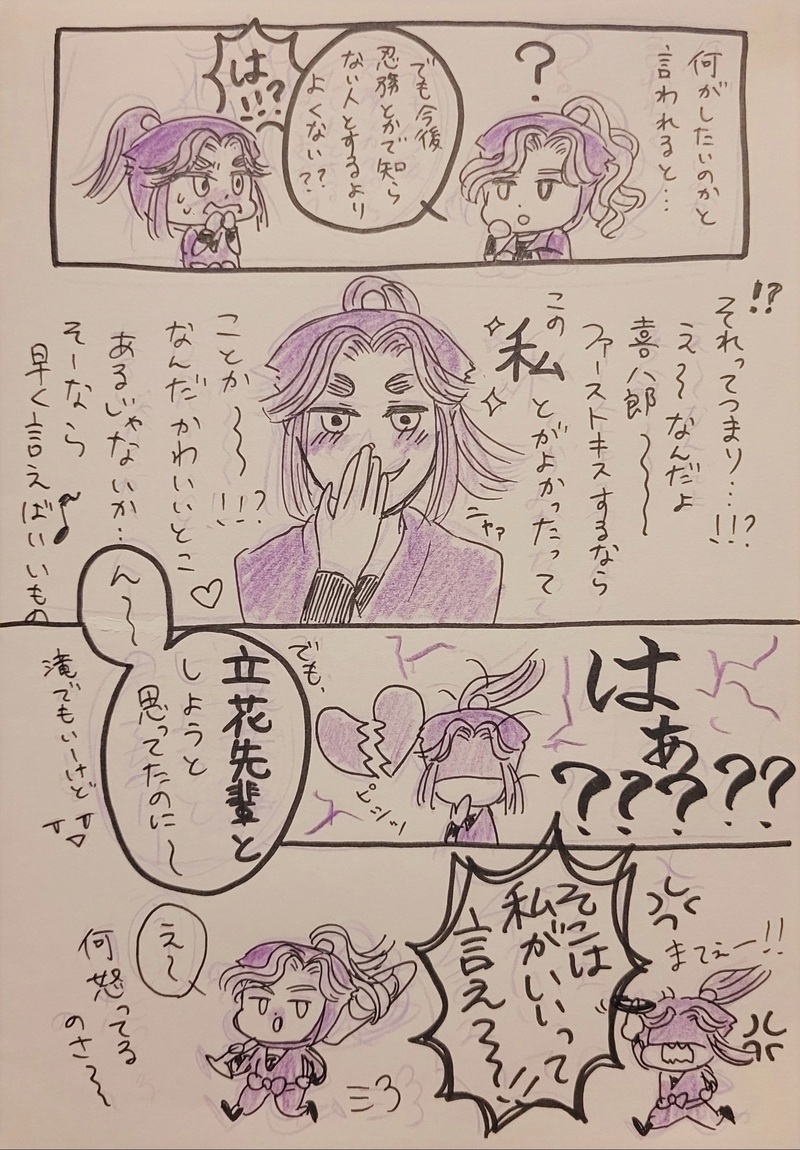 何がしたいのかと
言われると…
?
でも今後
忍務とかで知ら
ない人とするより
よくない??
は!!?
!?
それってつまり…!!?
え〜なんだよ
喜八郎〜〜
ファーストキスするなら
この
私
とがよかったって
ニヤァ
ことか〜〜!!?
なんだかわいいとこ
あるじゃないか…♡
そーなら
早く言えばいいもの♪
はぁ?????
ピシッ
でも、
ん〜
立花先輩と
しようと
思ってたのに〜
滝でもいーけど
まてぇー!!
そこは
私がいいって
言え〜〜!!
え〜
何怒ってる
のさ〜〜